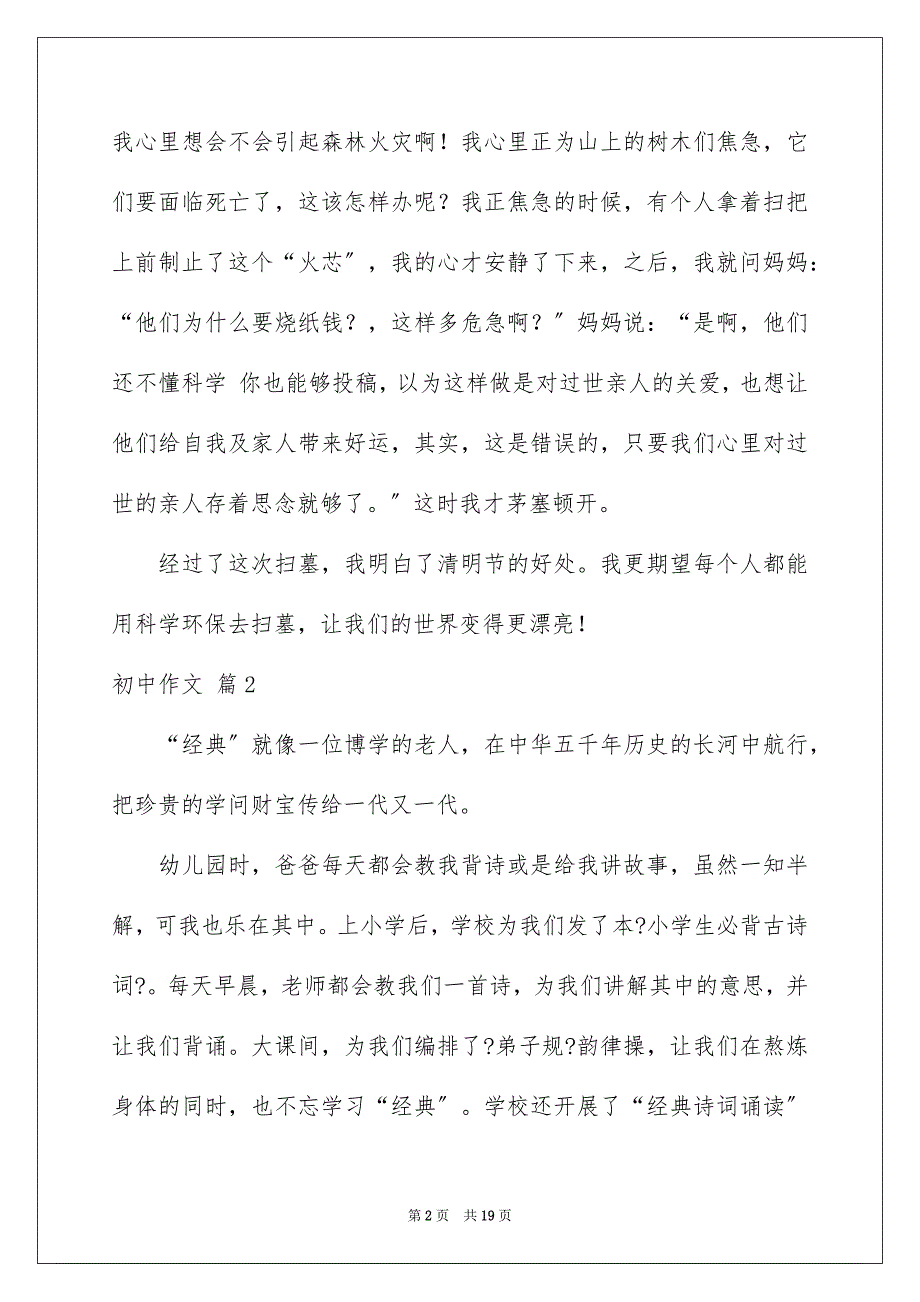 我心里想会不会引起森林火灾啊！我心里正为山上的树木们焦急，它
们要面临死亡了，这该怎样办呢？我正焦急的时候，有个人拿着扫把
上前制止了这个“火芯〞，我的心才安静了下来，之后，我就问妈妈：
“他们为什么要烧纸钱？，这样多危急啊？〞妈妈说：“是啊，他们
还不懂科学 你也能够投稿，以为这样做是对过世亲人的关爱，也想让
他们给自我及家人带来好运，其实，这是错误的，只要我们心里对过
世的亲人存着思念就够了。〞这时我才茅塞顿开。
经过了这次扫墓，我明白了清明节的好处。我更期望每个人都能
用科学环保去扫墓，让我们的世界变得更漂亮！
初中作文 篇2
“经典〞就像一位博学的老人，在中华五千年历史的长河中航行，
把珍贵的学问财宝传给一代又一代。
幼儿园时，爸爸每天都会教我背诗或是给我讲故事，虽然一知半
解，可我也乐在其中。上小学后，学校为我们发了本?小学生必背古诗
词?。每天早晨，老师都会教我们一首诗，为我们讲解其中的意思，并
让我们背诵。大课间，为我们编排了?弟子规?韵律操，让我们在熬炼
身体的同时，也不忘学习“经典〞。学校还开展了“经典诗词诵读〞
第2页 共19页